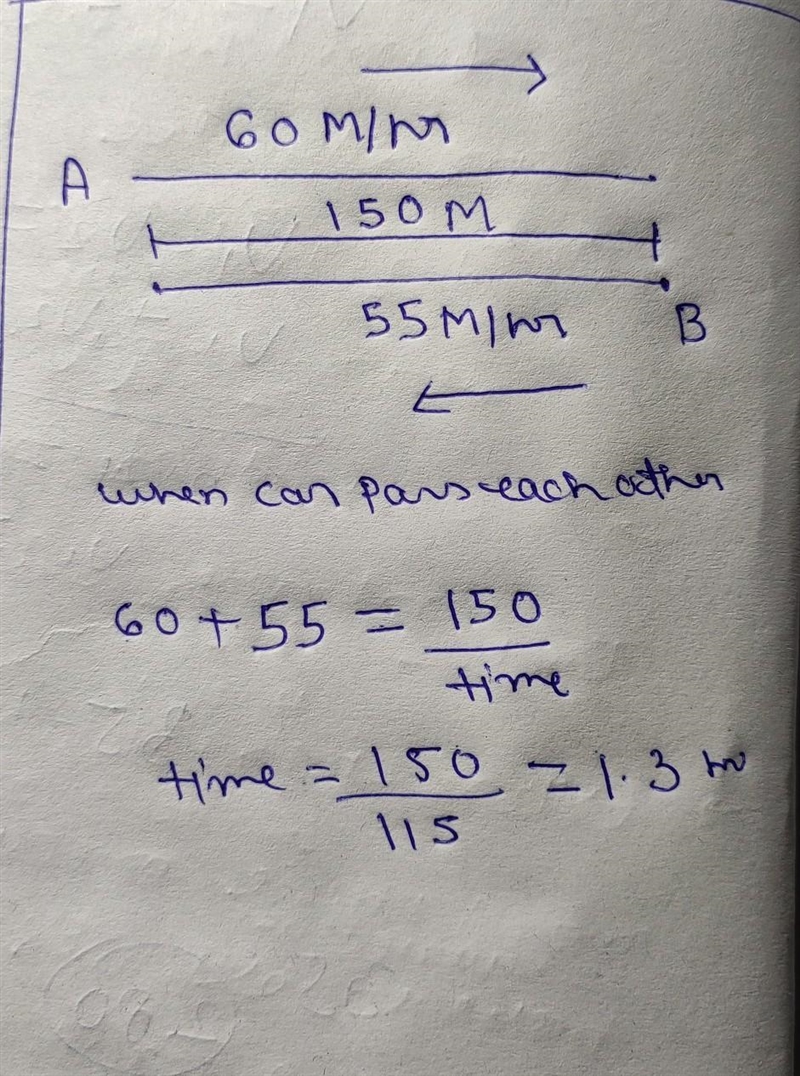 60 M/hr
A
150 M
55 M/hr B
when can pass each other
60 + 55 = 150/time
time = 150/115 = 1.3 hr